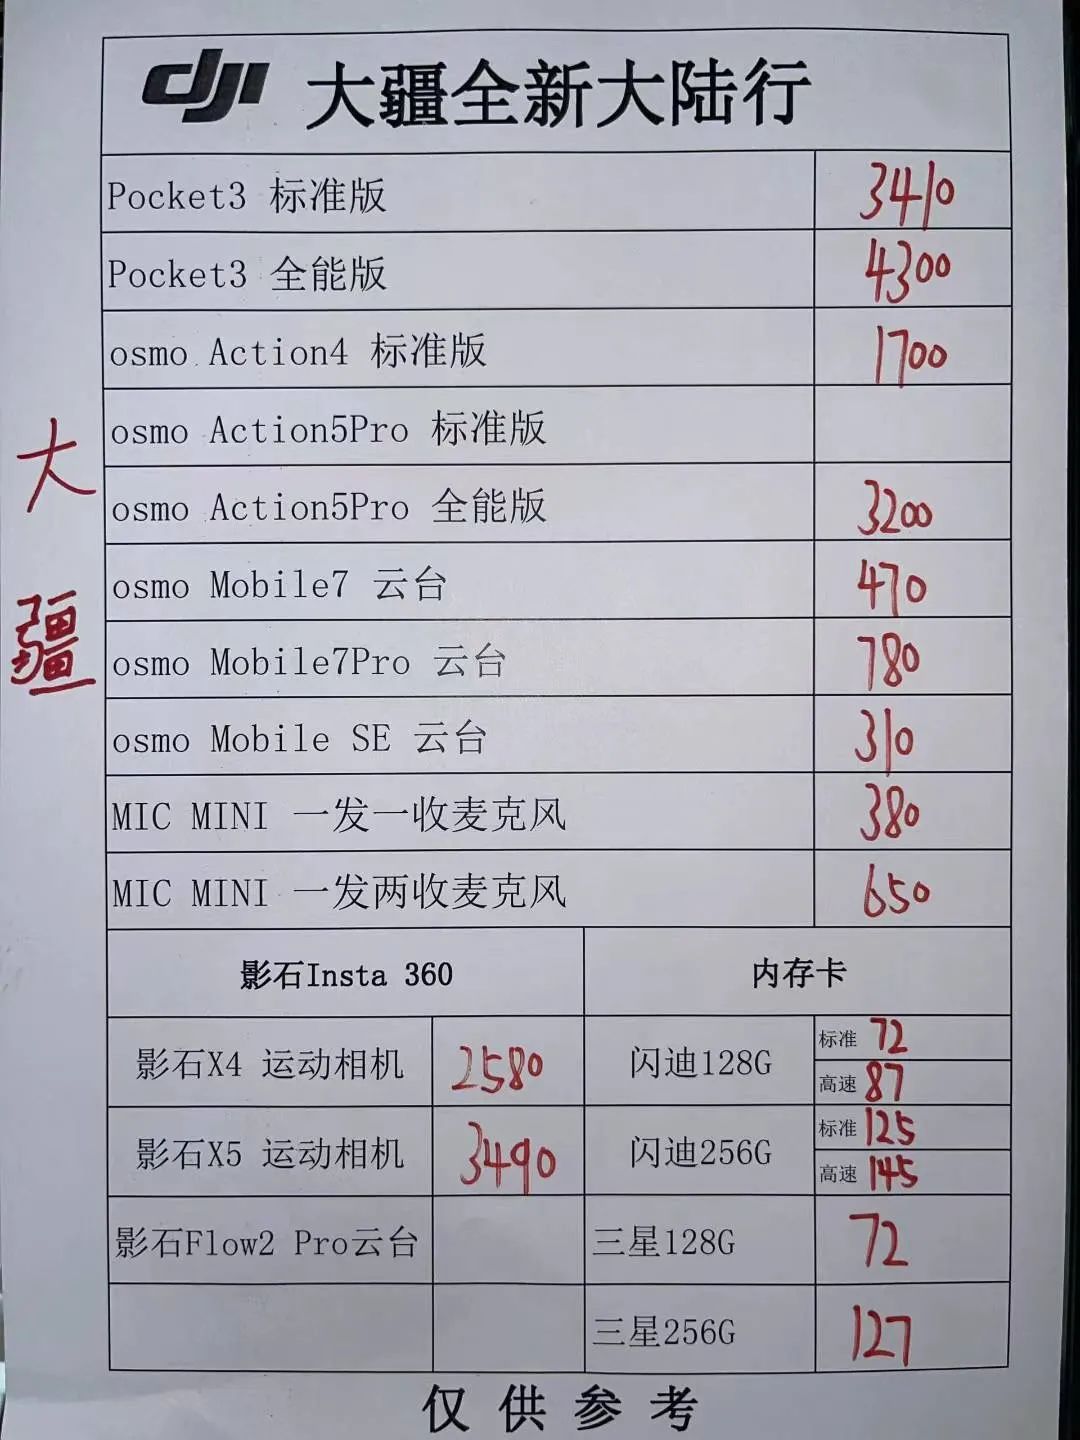 dji 大疆全新大陆行
Pocket3 标准版 3410
Pocket3 全能版 4300
osmo Action4 标准版 1700
osmo Action5Pro 标准版
osmo Action5Pro 全能版 3200
osmo Mobile7 云台 470
osmo Mobile7Pro 云台 780
osmo Mobile SE 云台 310
MIC MINI 一发一收麦克风 380
MIC MINI 一发两收麦克风 650
大疆
影石Insta 360 内存卡
影石X4 运动相机 2580 闪迪128G 标准 72
高速 87
影石X5 运动相机 3490 闪迪256G 标准 125
高速 145
影石Flow2 Pro云台 三星128G 72
三星256G 127
仅供参考